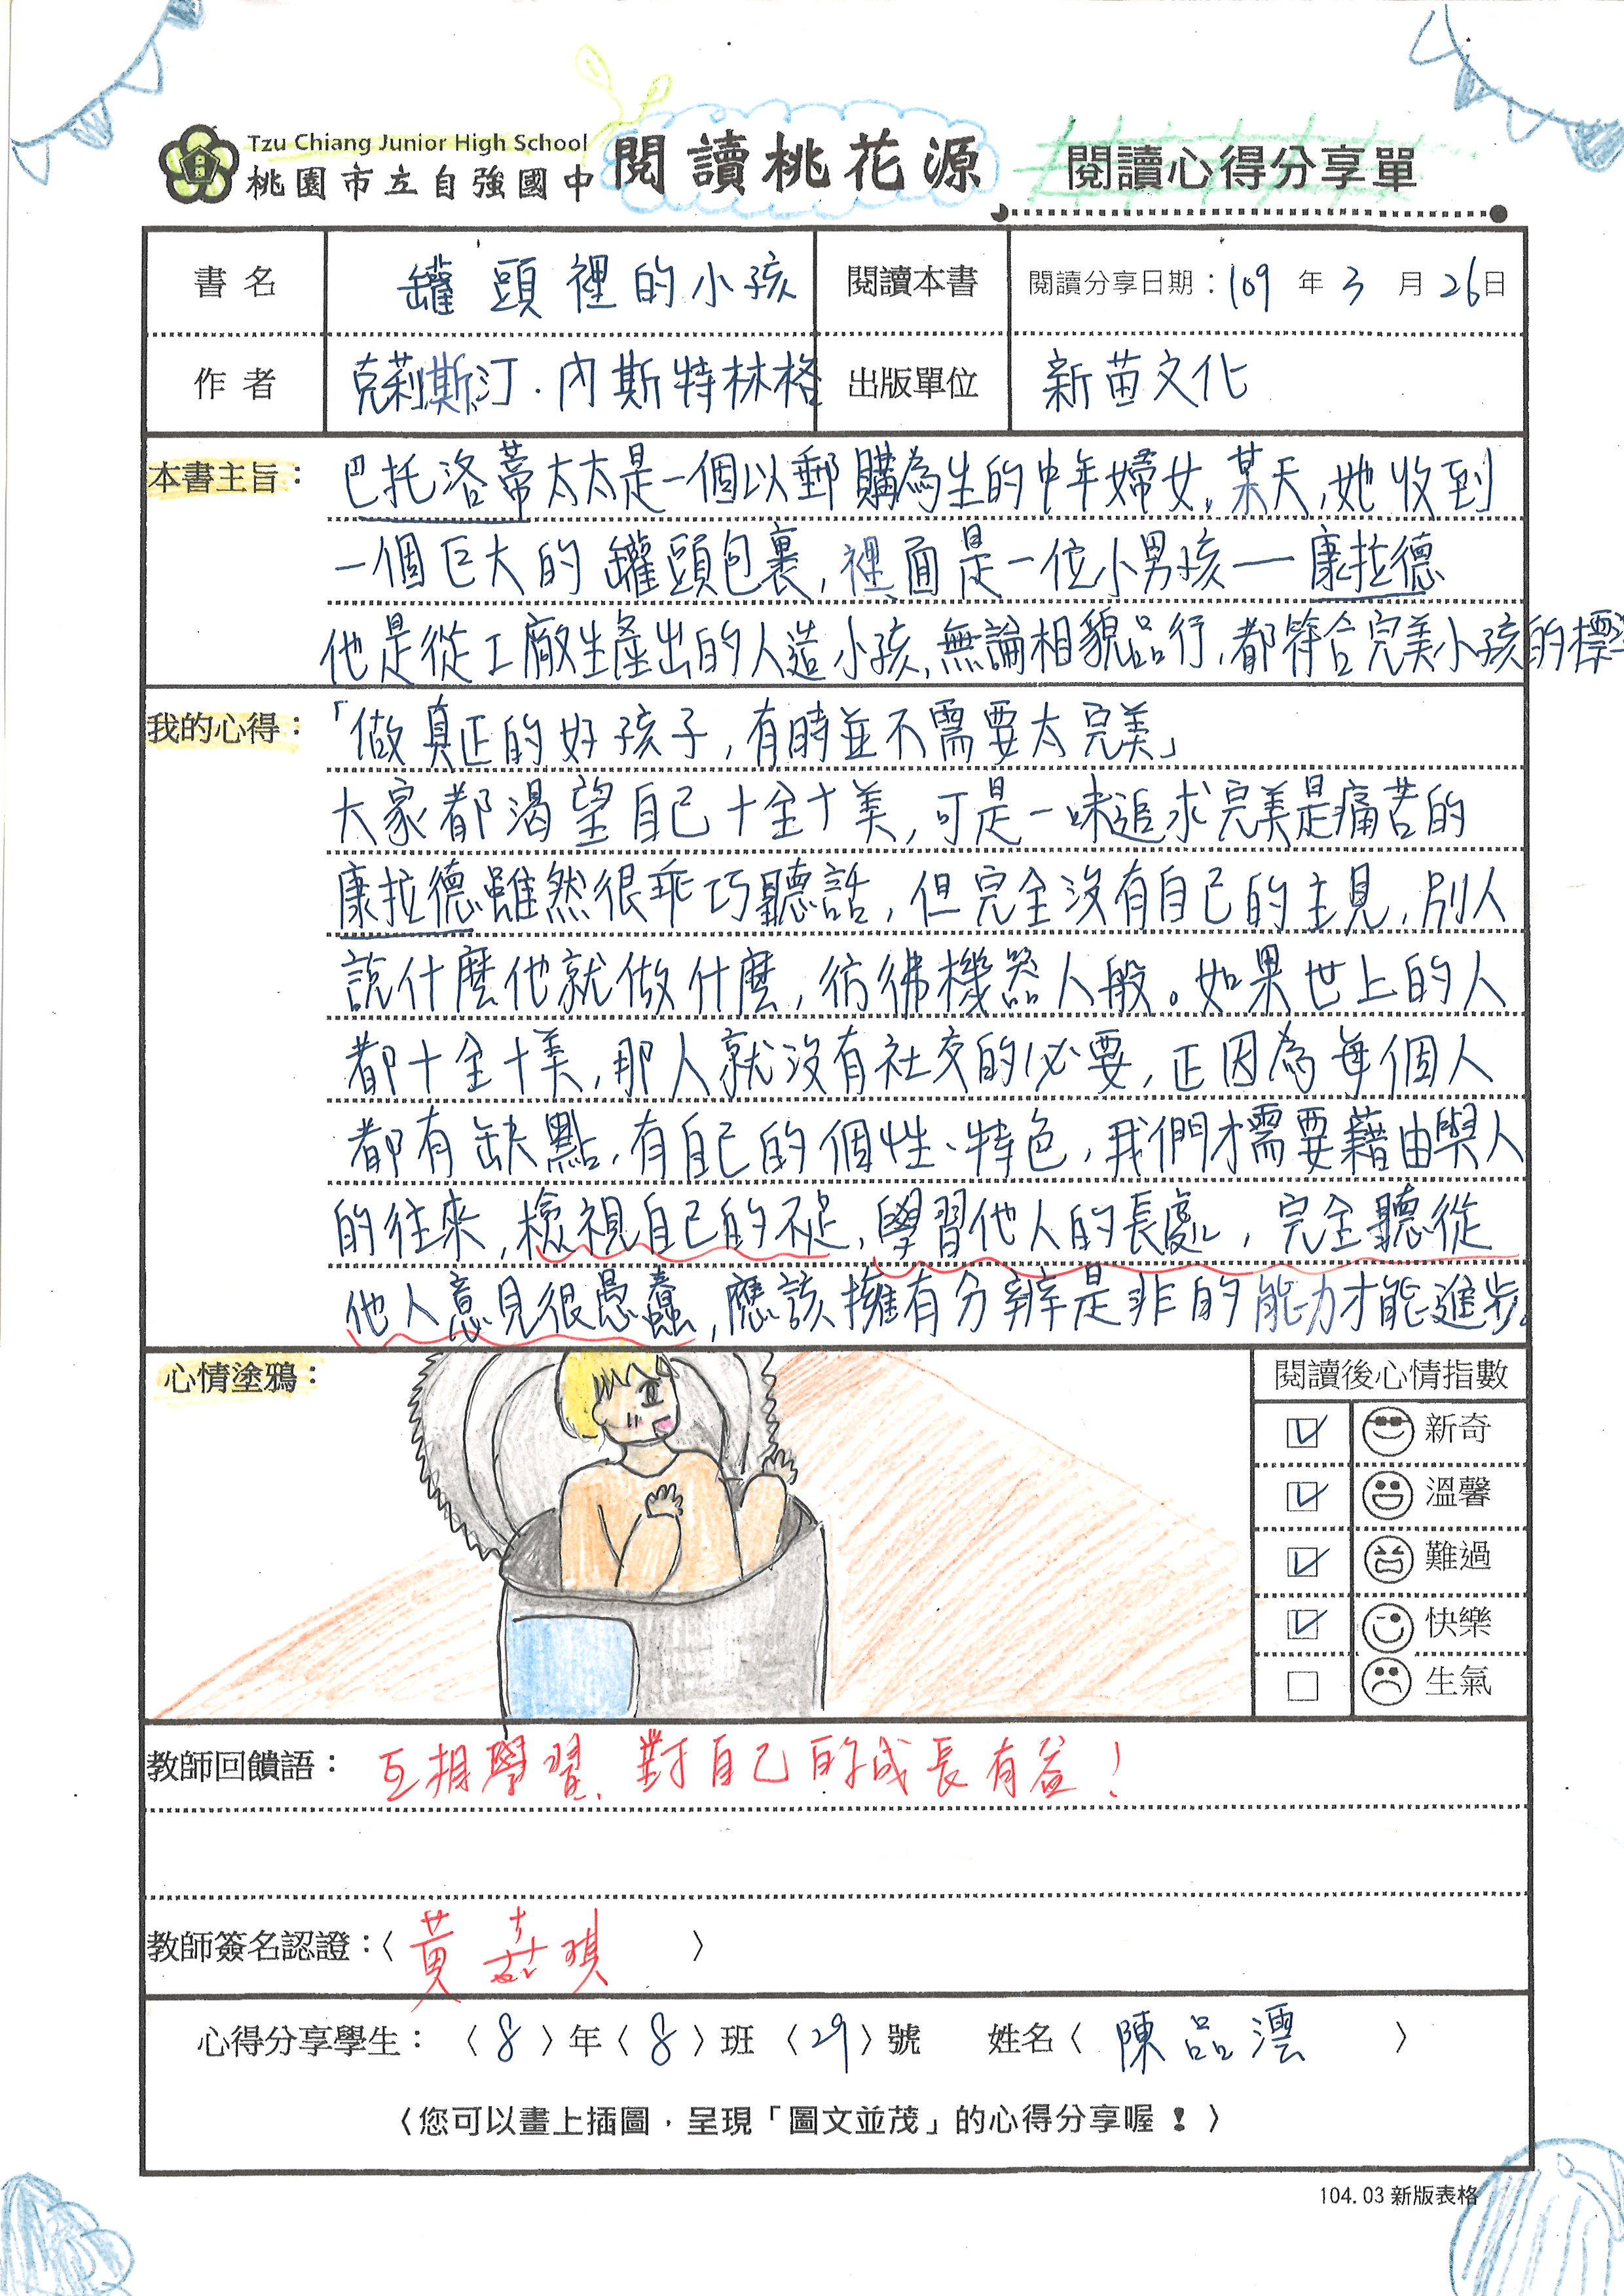 Tzu Chiang Junior High School
桃園市立自強國中 閱讀桃花源 閱讀心得分享單
書名 罐頭裡的小孩 閱讀本書 閱讀分享日期：109 年 3 月 26 日
作者 克莉斯汀．內斯特林格 出版單位 新苗文化
本書主旨：巴托洛蒂太太是一個以郵購為生的中年婦女。某天，她收到
一個巨大的罐頭包裹，裡面是一位小男孩—康拉德
他是從工廠生產出的人造小孩，無論相貌品行，都符合完美小孩的標準
我的心得：「做真正的好孩子，有時並不需要太完美」
大家都渴望自己十全十美，可是一味追求完美是痛苦的
康拉德雖然很乖巧聽話，但完全沒有自己的主見，別人
說什麼他就做什麼，彷彿機器人般。如果世上的人
都十全十美，那人就沒有社交的必要，正因為每個人
都有缺點，有自己的個性、特色，我們才需要藉由與人
的往來，檢視自己的不足，學習他人的長處，完全聽從
他人意見很愚蠢，應該擁有分辨是非的能力才能進步。
心情塗鴉：
閱讀後心情指數
新奇
溫馨
難過
快樂
生氣
教師回饋語：互相學習，對自己的成長有益！
教師簽名認證：〈 黃嘉琪 〉
心得分享學生：〈 8 〉年〈 8 〉班〈 29 〉號 姓名〈 陳品澐 〉
〈您可以畫上插圖，呈現「圖文並茂」的心得分享喔！〉
104.03 新版表格